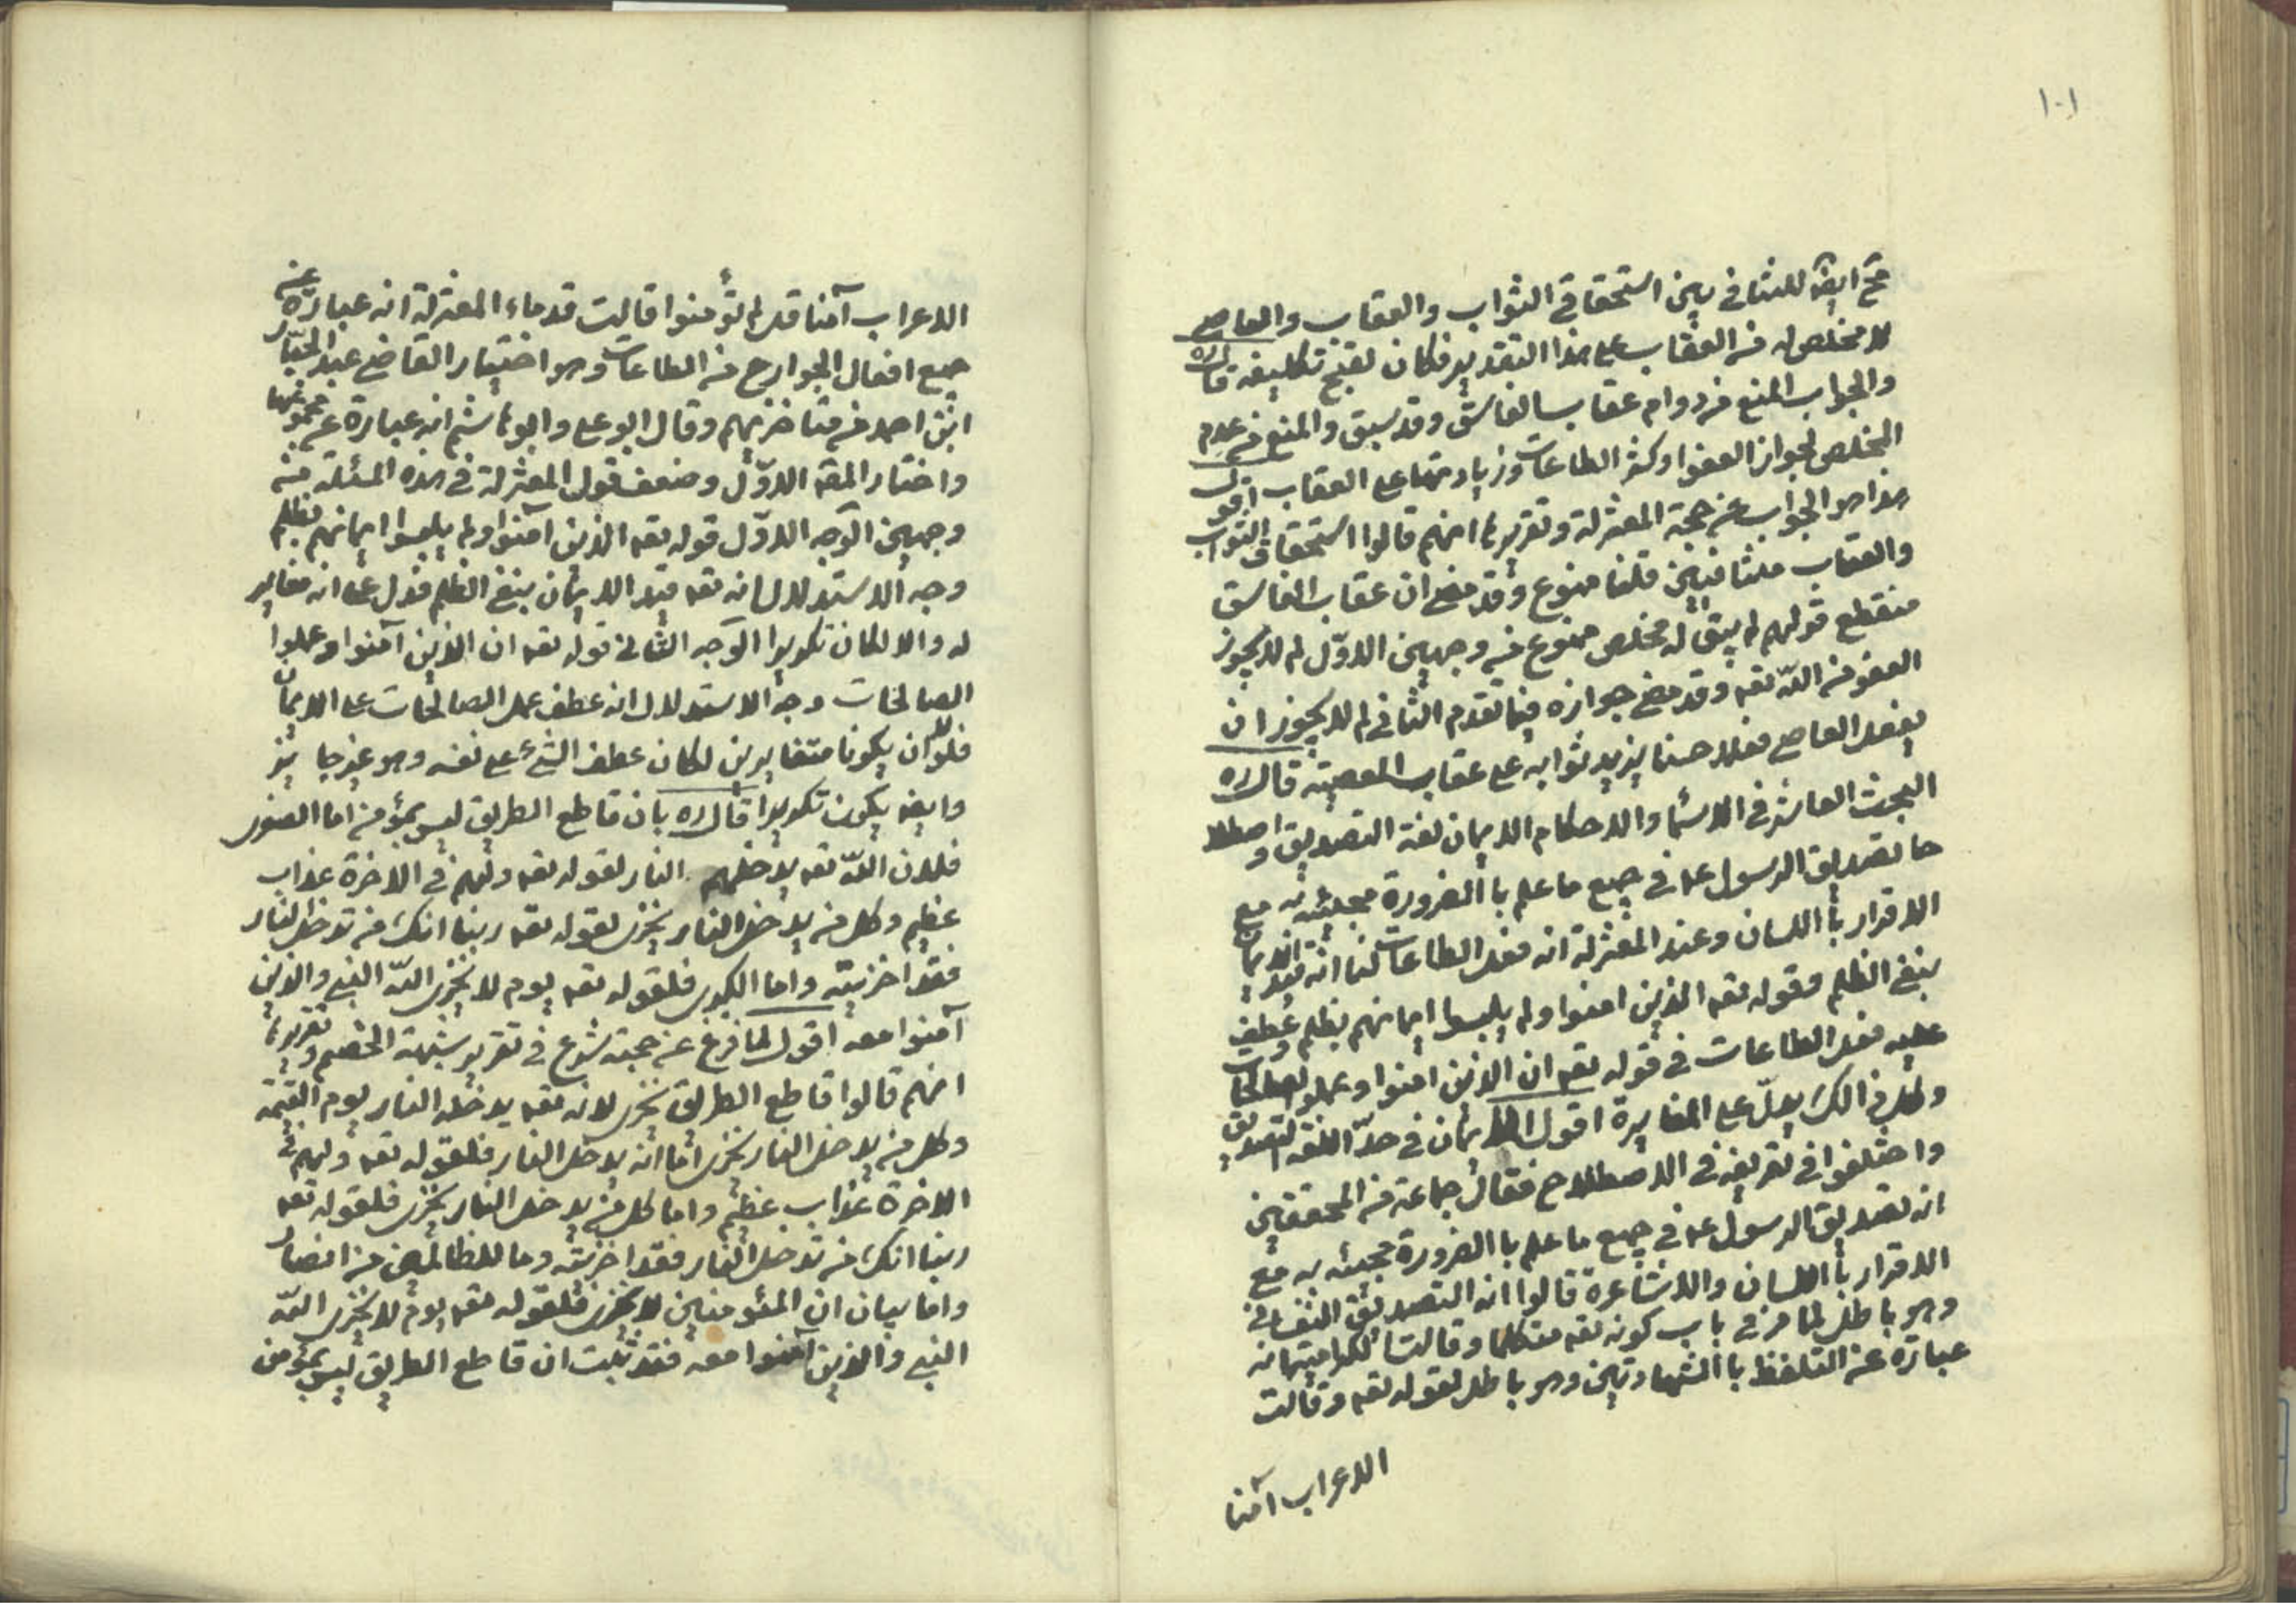 ١٠١
ايضا للتنافي بين استحقاقي الثواب والعقاب والعاصي
لا مخلص له من العقاب على هذا التقدير فكان لقبح تكليفه قال ره
والجواب المنع من دوام عقاب الفاسق وقد سبق والمنع من عدم
المخلص لجواز العفو او كثر الطاعات وزيادتها على العقاب اقول
هذا هو الجواب عن حجة المعتزلة وتقريرها انهم قالوا استحقاق الثواب
والعقاب متنافيين قلنا ممنوع وقد مضى ان عقاب الفاسق
منقطع قولهم لم يبق له مخلص ممنوع من وجهين الاوّل لم لا يجوز
العفو من اللّه تعه وقد مضى جوازه فيما تقدم الثاني لم لا يجوز ان
يفعل العاصي فعلا حسنا يزيد ثوابه على عقاب المعصية قال ره
البحث العاشر في الاسما والاحكام الايمان لغة التصديق واصطلا
حا تصديق الرسول عم في جميع ما علم باالضرورة مجيئه به مع
الاقرار باللسان وعند المعتزلة انه فعل الطاعات لنا انه قيد الايمان
بنفي الظلم وقوله تعه الذين امنوا ولم يلبسوا ايمانهم بظلم وعطف
عليه فعل الطاعات في قوله تعه ان الذين امنوا وعملو الصالحات
وكل ذالك يدلّ على المغايرة اقول الايمان في حدّ اللغة التصديق
واختلفوا في تعريفه في الاصطلاح فقال جماعة من المحققين
انه تصديق الرسول عم في جميع ما علم باالضرورة مجيئه به مع
الاقرار باللسان والاشاعرة قالوا انه التصديق النفساني
وهو باطل لما مر في باب كونه تعه متكلما وقالت الكرامية انه
عبارة عن التلفظ باالشهادتين وهو باطل لقوله تعه وقالت
الاعراب آمنا
الاعراب آمنا قل لم تؤمنوا قالت قدماء المعتزلة انه عبارة عن
جميع افعال الجوارح من الطاعات وهو اختيار القاضي عبد الجبّار
ابن احمد من متاخريهم وقال ابو على وابو هاشم انه عبارة عن مجموعها
واختار المصه الاوّل وضعف قول المعتزلة في هذه المسئلة من
وجهين الوجه الاوّل قوله تعه الذين آمنوا ولم يلبسوا ايمانهم بظلم
وجه الاستدلال انه تعه قيد الايمان بنفي الظلم فدل على انه مغاير
له والا لكان تكريرا الوجه الثاني قوله تعه ان الذين آمنوا وعملوا
الصالحات وجه الاستدلال انه عطف عمل الصالحات على الايمان
فلولا ان يكونا متغايرين لكان عطف الشيء على نفسه وهو غير جايز
وايضا يكون تكريرا قال ره بان قاطع الطريق ليس بمؤمن اما الصغرى
فلان اللّه تعه يدخلهم النار لقوله تعه ولهم في الاخرة عذاب
عظيم وكل من يدخل النار يخزى لقوله تعه ربنا انك من تدخل النار
فقد اخزيته واما الكبرى فلقوله تعه يوم لا يخزى اللّه النبي والذين
آمنوا معه اقول لما فرغ عن حجته شرع في تقرير شبهة الخصم وتقريرها
انهم قالوا قاطع الطريق يخزى لانه تعه يدخله النار يوم القيمة
وكل من يدخل النار يخزى اما انه يدخل النار فلقوله تعه ولهم في
الاخرة عذاب عظيم واما كل من يدخل النار يخزى فلقوله تعه
ربنا انك من تدخل النار فقد اخزيته وما للظالمين من انصار
واما بيان ان المئومنين لا يخزى فلقوله تعه يوم لا يخزى اللّه
النبي والذين آمنوا معه فقد ثبت ان قاطع الطريق ليس بمؤمن